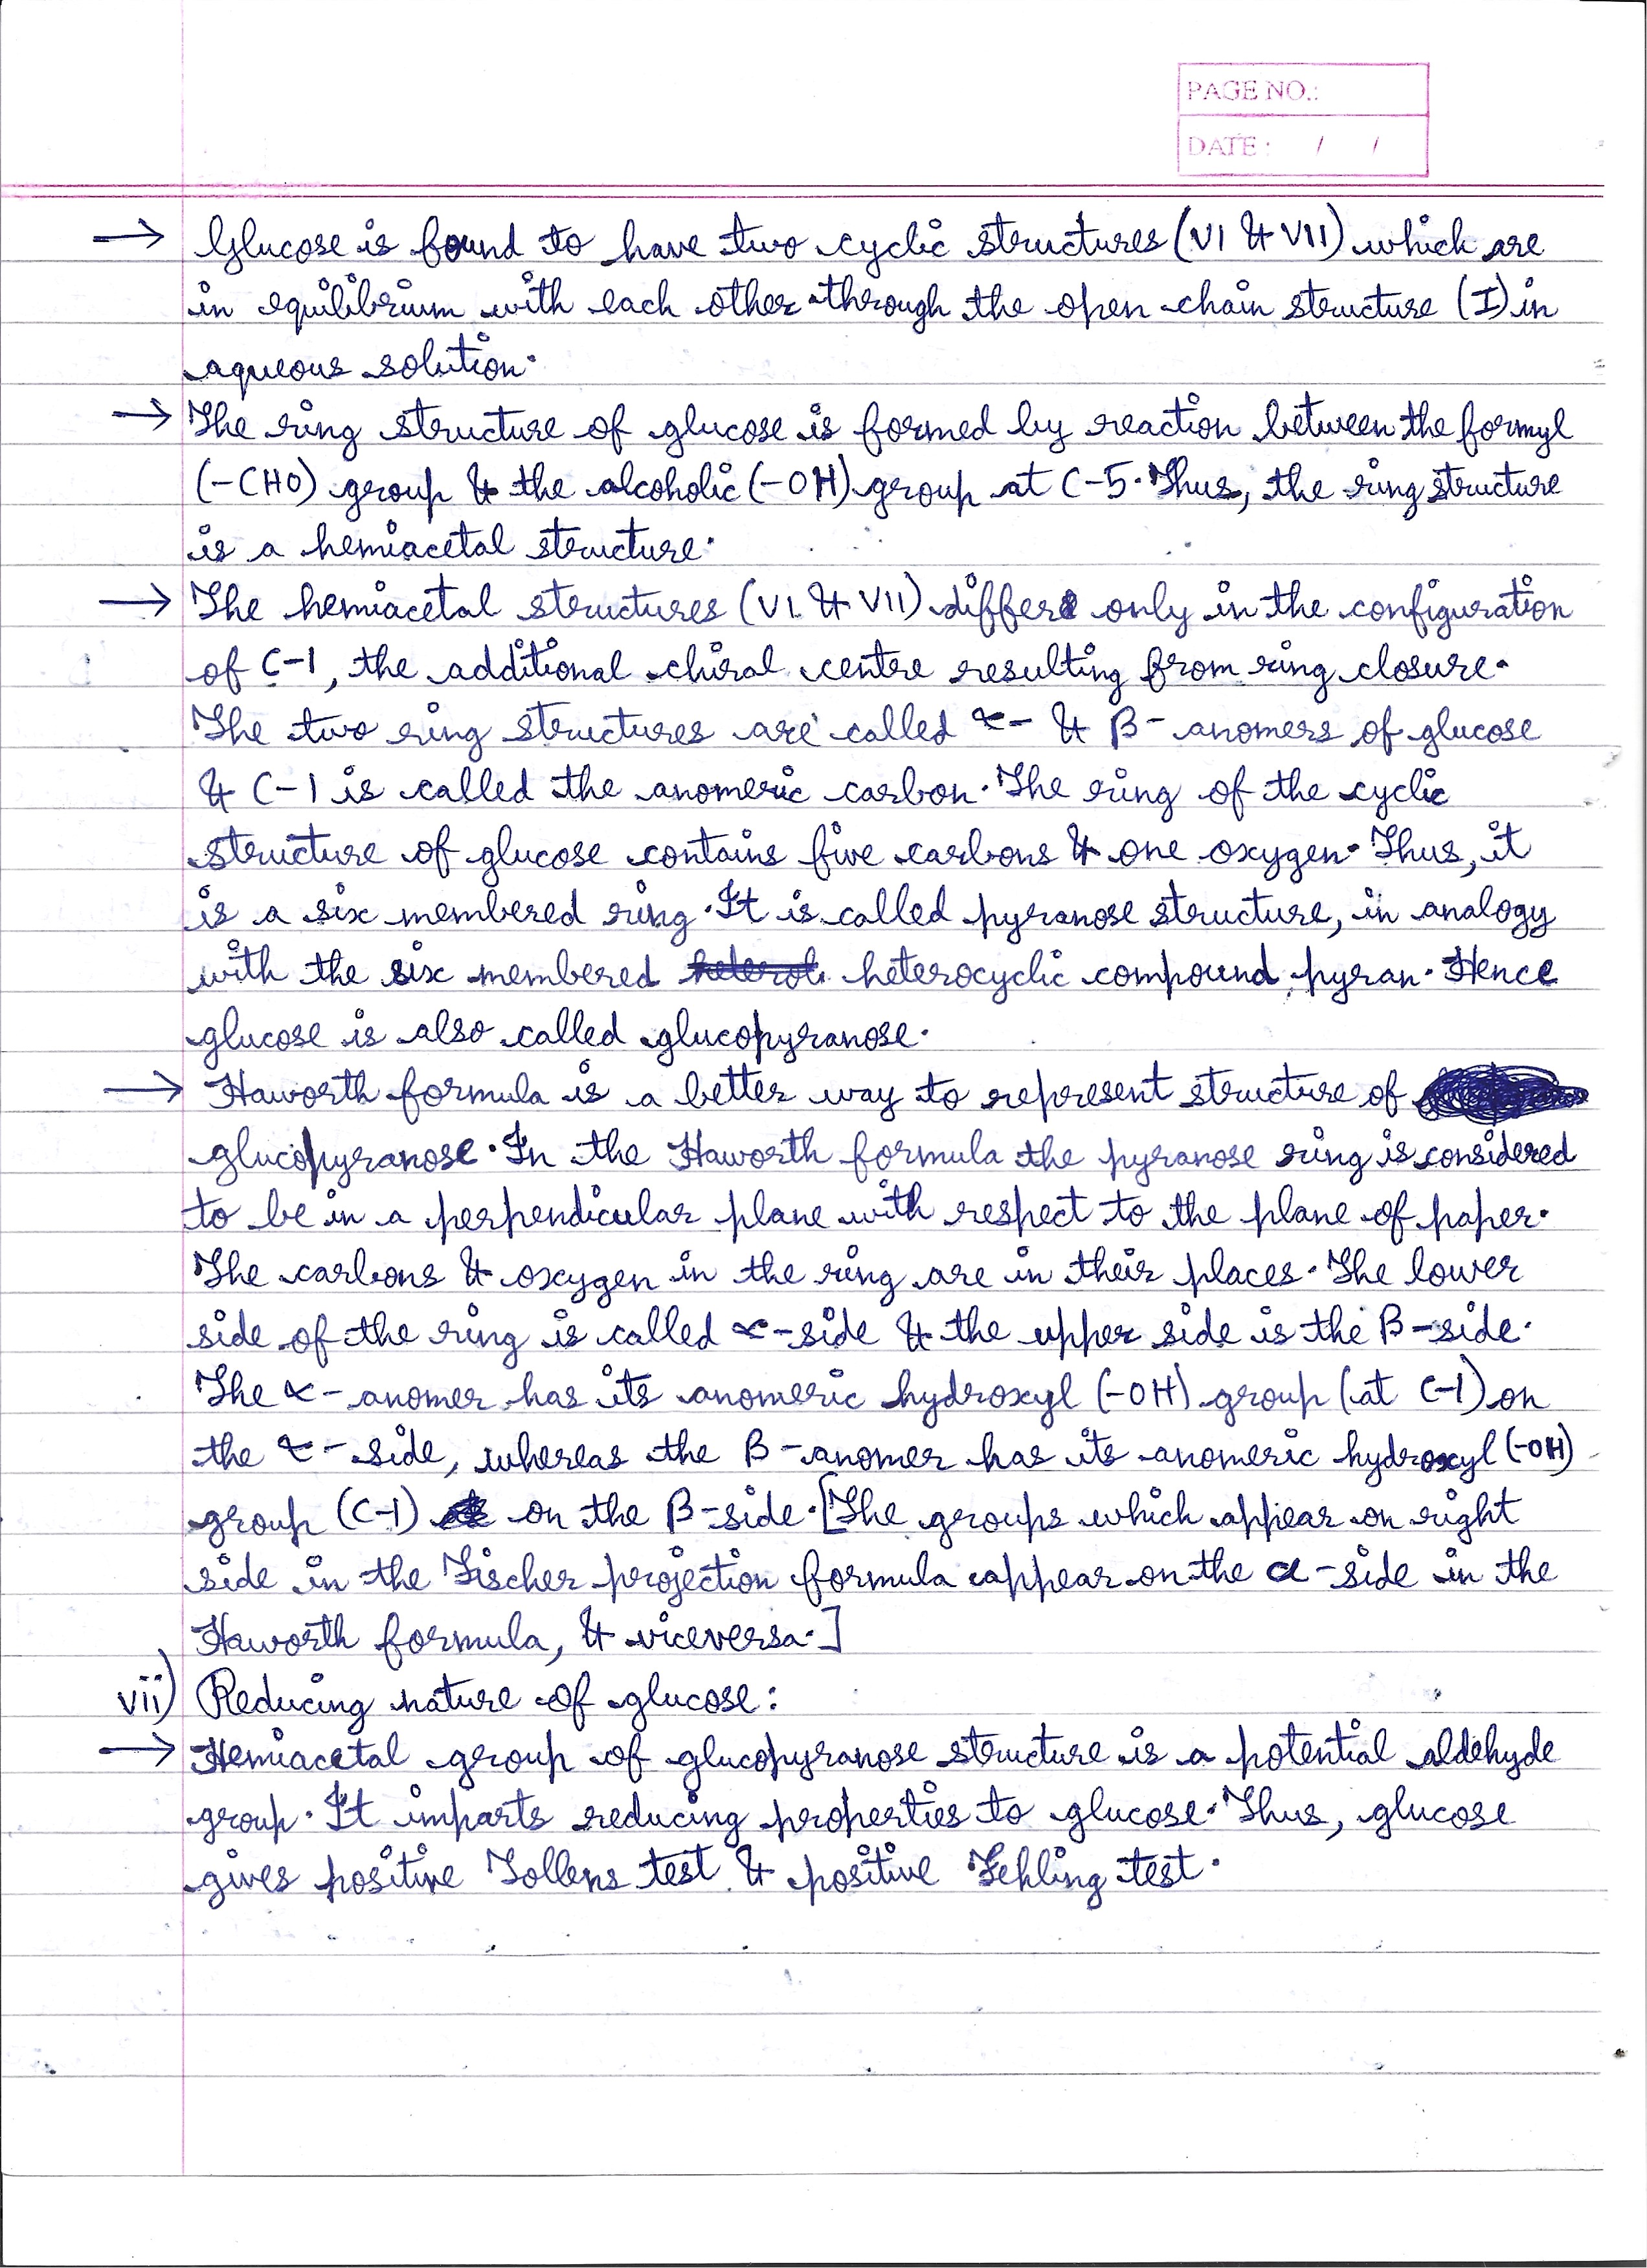 PAGE NO.:
DATE: / /
→ Glucose is found to have two cyclic structures (VI & VII) which are
in equilibrium with each other through the open chain structure (I) in
aqueous solution.
→ The ring structure of glucose is formed by reaction between the formyl
(-CHO) group & the alcoholic (-OH) group at C-5. Thus, the ring structure
is a hemiacetal structure.
→ The hemiacetal structures (VI & VII) differ only in the configuration
of C-1, the additional chiral centre resulting from ring closure.
The two ring structures are called α- & β- anomers of glucose
& C-1 is called the anomeric carbon. The ring of the cyclic
structure of glucose contains five carbons & one oxygen. Thus, it
is a six membered ring. It is called pyranose structure, in analogy
with the six membered heterocyclic compound pyran. Hence
glucose is also called glucopyranose.
→ Haworth formula is a better way to represent structure of
glucopyranose. In the Haworth formula the pyranose ring is considered
to be in a perpendicular plane with respect to the plane of paper.
The carbons & oxygen in the ring are in their places. The lower
side of the ring is called α-side & the upper side is the β-side.
The α- anomer has its anomeric hydroxyl (-OH) group (at C-1) on
the α- side, whereas the β-anomer has its anomeric hydroxyl (-OH)
group (C-1) on the β-side. [The groups which appear on right
side in the Fischer projection formula appear on the α-side in the
Haworth formula, & viceversa.]
vii) Reducing nature of glucose:
→ Hemiacetal group of glucopyranose structure is a potential aldehyde
group. It imparts reducing properties to glucose. Thus, glucose
gives positive Tollens test & positive Fehling test.